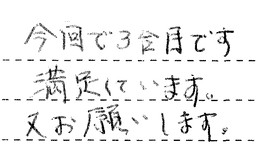 今回で3台目です
満足しています。
又お願いします。